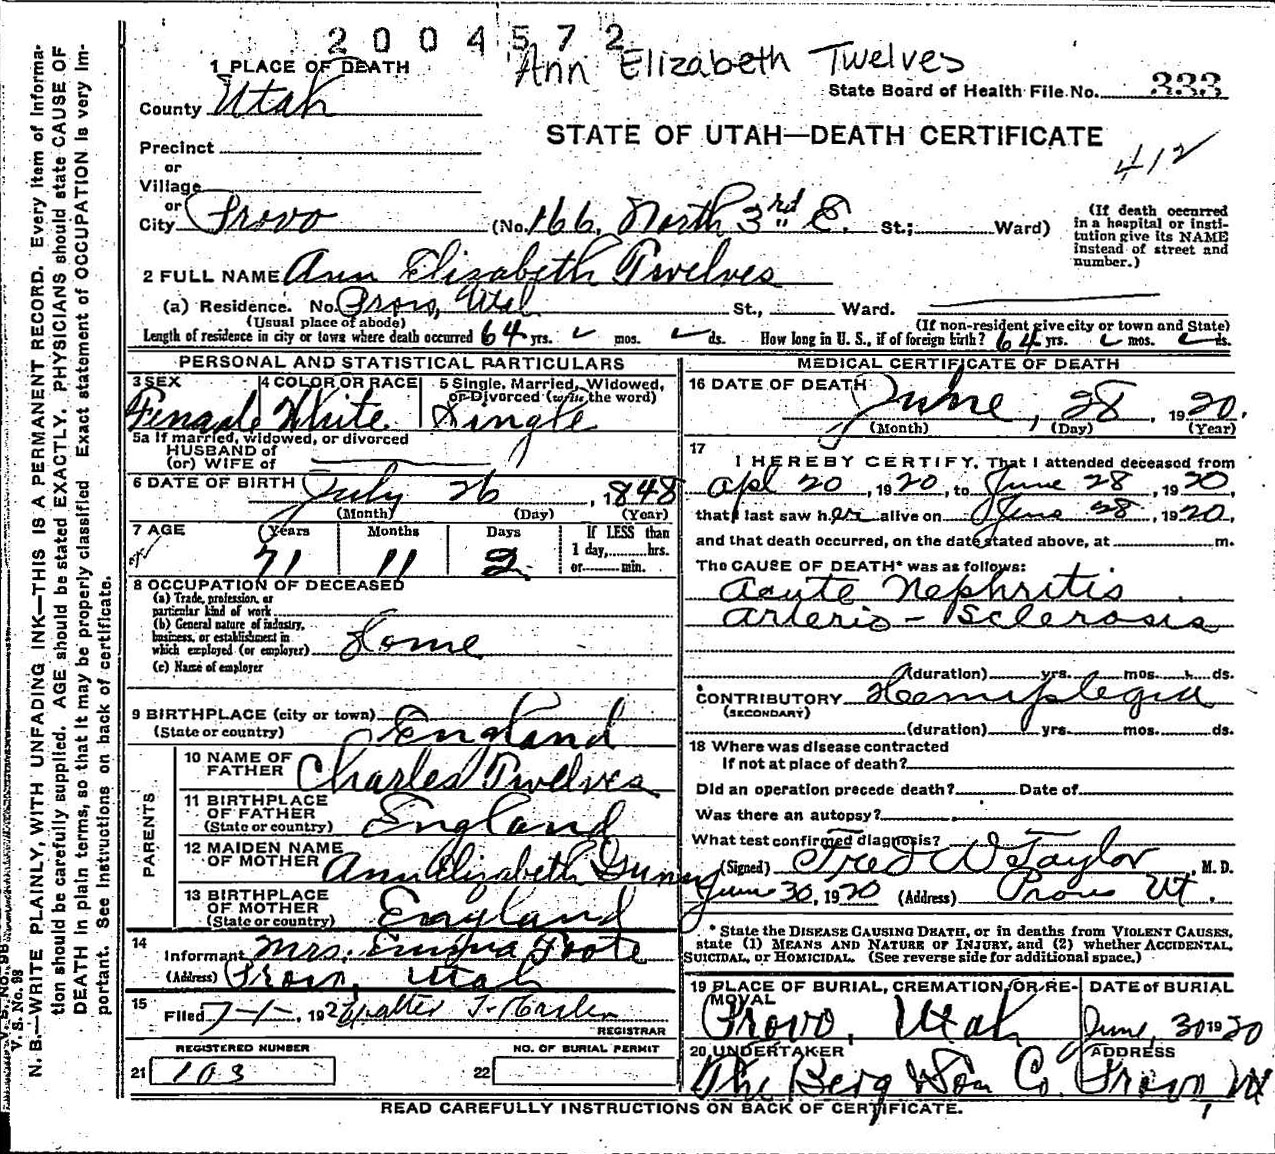 2004572
Ann Elizabeth Twelves
1 PLACE OF DEATH
State Board of Health File No. 333
County Utah
STATE OF UTAH—DEATH CERTIFICATE
412
Precinct
or
Village
or
City Provo (No. 166, North 3rd E. St.; Ward)
(If death occurred in a hospital or insti-tution give its NAME instead of street and number.)
2 FULL NAME Ann Elizabeth Twelves
(a) Residence. No. Provo, Utah St., Ward.
(Usual place of abode) (If non-resident give city or town and State)
Length of residence in city or town where death occurred 64 yrs. mos. ds. How long in U. S., if of foreign birth? 64 yrs. mos. ds.
PERSONAL AND STATISTICAL PARTICULARS
3 SEX Female
4 COLOR OR RACE White
5 Single, Married, Widowed, or Divorced (write the word) Single
5a If married, widowed, or divorced
HUSBAND of
(or) WIFE of
6 DATE OF BIRTH July 26, 1848
(Month) (Day) (Year)
7 AGE Years Months Days If LESS than
71 11 2 1 day, hrs.
or min.
8 OCCUPATION OF DECEASED
(a) Trade, profession, or
particular kind of work
(b) General nature of industry,
business, or establishment in
which employed (or employer) Home
(c) Name of employer
9 BIRTHPLACE (city or town)
(State or country) England
PARENTS
10 NAME OF FATHER Charles Twelves
11 BIRTHPLACE OF FATHER
(State or country) England
12 MAIDEN NAME OF MOTHER Ann Elizabeth Gunn
13 BIRTHPLACE OF MOTHER
(State or country) England
14
Informant Mrs. Emma Foote
(Address) Provo, Utah
15
Filed 7-1-, 192 Walter T. Hasler
REGISTRAR
REGISTERED NUMBER NO. OF BURIAL PERMIT
21 103 22
MEDICAL CERTIFICATE OF DEATH
16 DATE OF DEATH June, 28 1920.
(Month) (Day) (Year)
17
I HEREBY CERTIFY, That I attended deceased from
Apl 20, 1920, to June 28, 1920,
that I last saw her alive on June 28, 1920,
and that death occurred, on the date stated above, at m.
The CAUSE OF DEATH* was as follows:
Acute Nephritis
Arterio-Sclerosis
(duration) yrs. mos. ds.
CONTRIBUTORY Hemiplegia
(SECONDARY)
(duration) yrs. mos. ds.
18 Where was disease contracted
If not at place of death?
Did an operation precede death? Date of
Was there an autopsy?
What test confirmed diagnosis?
(Signed) Fred W Taylor, M. D.
June 30, 1920 (Address) Provo Ut.
* State the DISEASE CAUSING DEATH, or in deaths from VIOLENT CAUSES,
state (1) MEANS AND NATURE OF INJURY, and (2) whether ACCIDENTAL,
SUICIDAL, or HOMICIDAL. (See reverse side for additional space.)
19 PLACE OF BURIAL, CREMATION, OR RE-MOVAL Provo, Utah
DATE of BURIAL June, 30 1920
20 UNDERTAKER The Berg & Son Co.
ADDRESS Provo, Ut
READ CAREFULLY INSTRUCTIONS ON BACK OF CERTIFICATE.
V. S. No. 98
N. B.—WRITE PLAINLY, WITH UNFADING INK—THIS IS A PERMANENT RECORD. Every item of informa-
tion should be carefully supplied. AGE should be stated EXACTLY. PHYSICIANS should state CAUSE OF
DEATH in plain terms, so that it may be properly classified. Exact statement of OCCUPATION is very im-
portant. See Instructions on back of certificate.